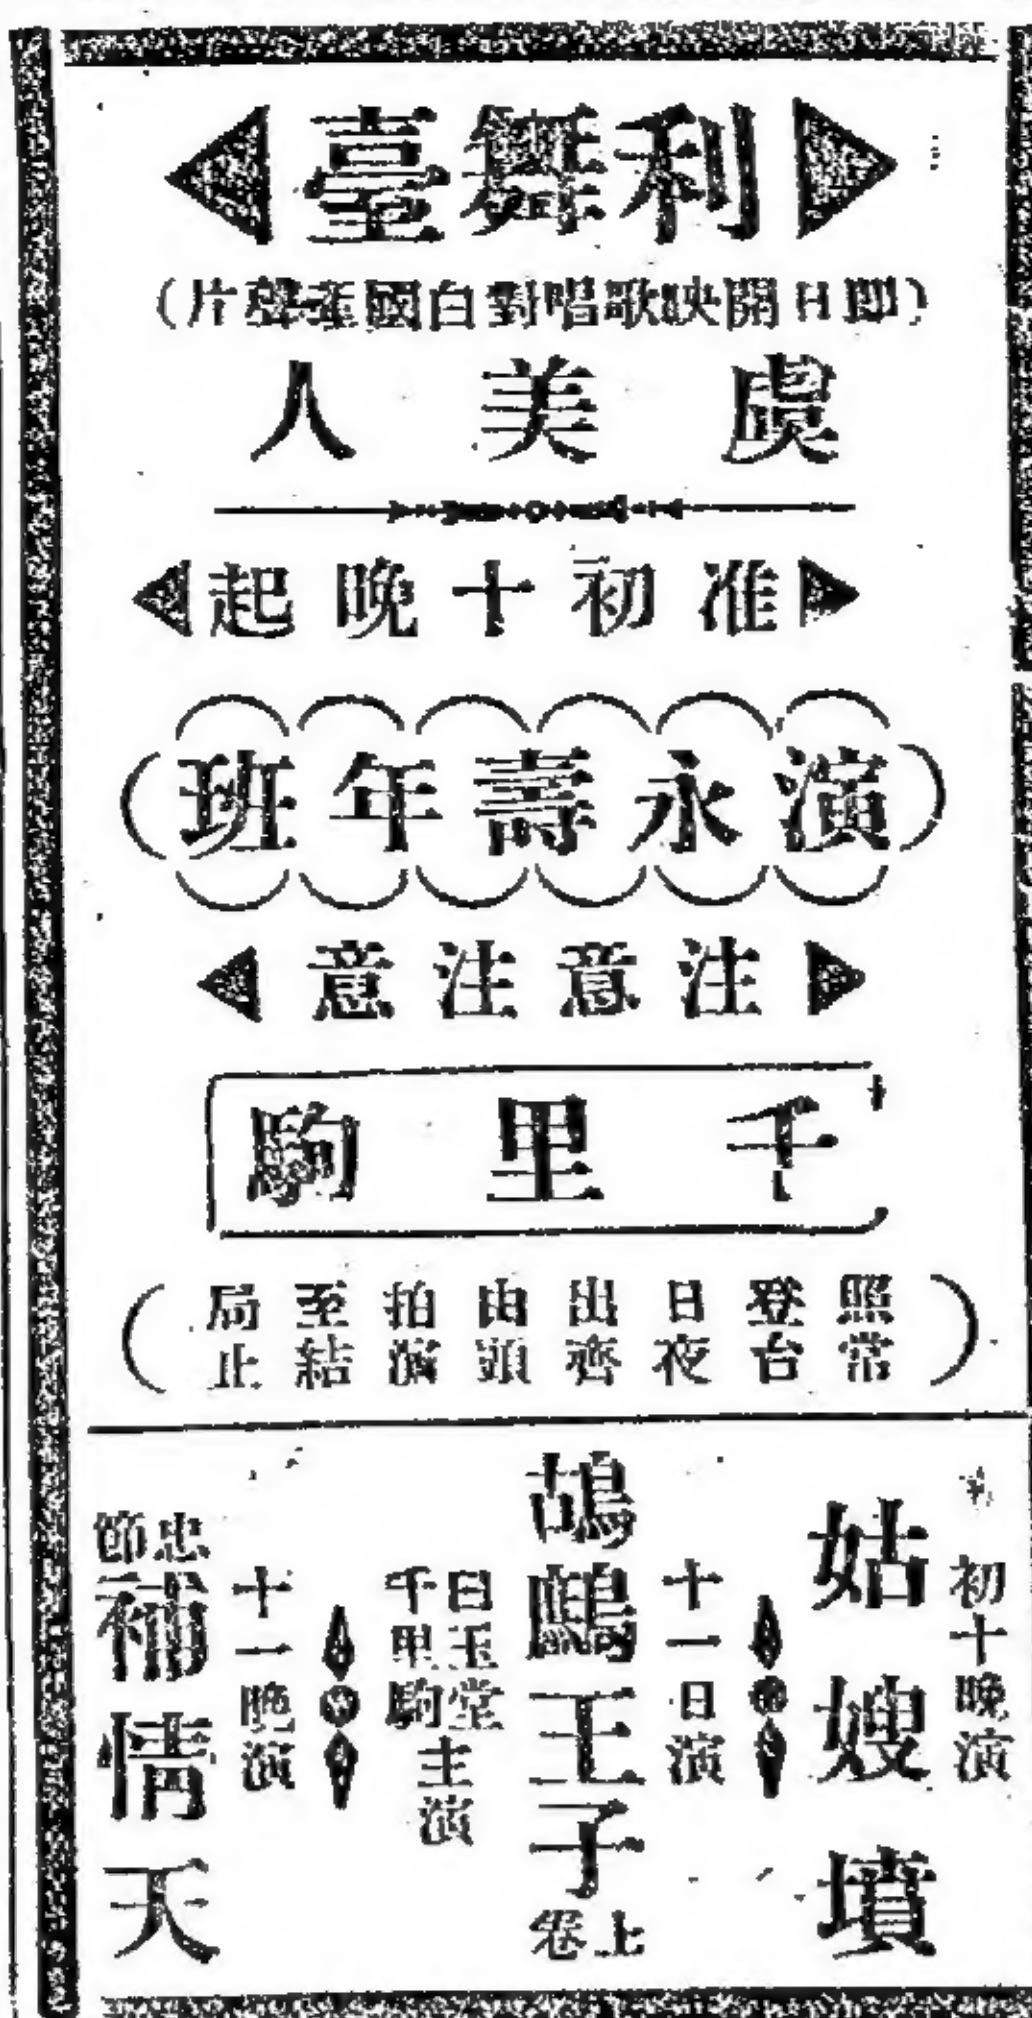 利舞臺
(即日開映歌唱對白國產聲片)
虞美人
准初十晚起
演永壽年班
注意注意
千里駒
(照常登台日夜出齊由頭拍演至結局止)
初十晚演
姑嫂墳
十一日演
鷓鴣王子上卷
白玉堂
千里駒
主演
十一晚演
忠節補情天